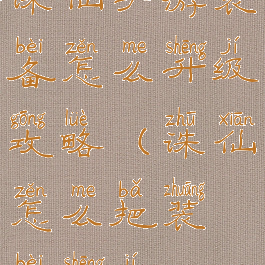 诛仙游装
bèi zěn me shēng jí
备怎么升级
gōng lüè zhū xiān
攻略(诛仙
zěn me bǎ zhuāng
怎么把装
bèi shēng jí